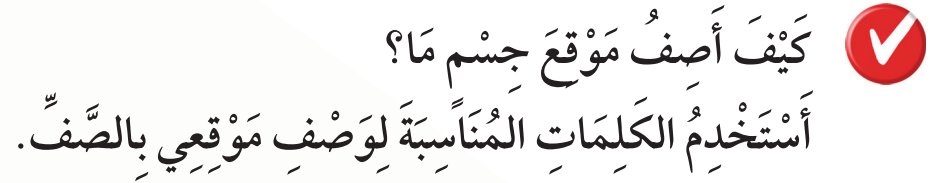 كَيْفَ أَصِفُ مَوْقِعَ جِسْمٍ مَا؟
أَسْتَخْدِمُ الكَلِمَاتِ المُنَاسِبَةَ لِوَصْفِ مَوْقِعِي بِالصَّفِّ.